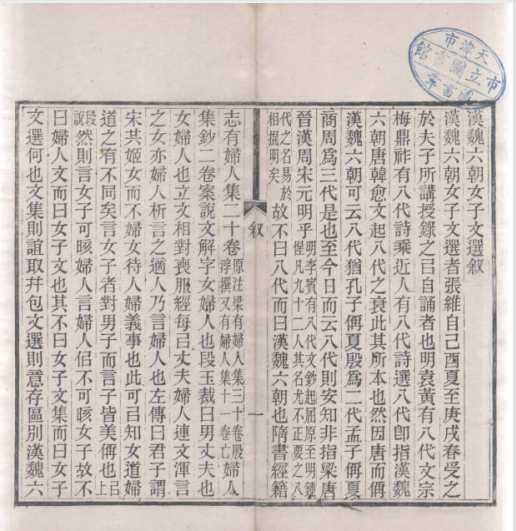 漢魏六朝女子文選敘
漢魏六朝女子文選者張維自己酉夏至庚戌春受之
於夫子所講授錄之㠯自誦者也明袁黃有八代文宗
梅鼎祚有八代詩乘近人有八代詩選八代卽指漢魏
六朝唐韓愈文起八代之衰此其所本也然因唐而偁
漢魏六朝可云八代猶孔子偁夏殷爲二代孟子偁夏
商周爲三代是也至今日而云八代則安知非指梁唐
晉漢周宋元明乎
故不曰八代而曰漢魏六朝也隋書經籍
志有婦人集二十卷
集鈔二卷案說文解字女婦人也段玉裁曰男丈夫也
女婦人也立文相對喪服經每㠯丈夫婦人連文渾言
之女亦婦人析言之適人乃言婦人也左傳曰君子謂
宋共姬女而不婦女待人婦義事也此可㠯知女道婦
道之有不同矣言女子者對男子而言子皆美偁也㠯上
段說然則言女子可晐婦人言婦人不可晐女子故不
曰婦人文而曰女子文也其不曰女子文集而曰女子
文選何也文集則誼取幷包文選則意存區別漢魏六
敘
一
天津市
市立圖書館